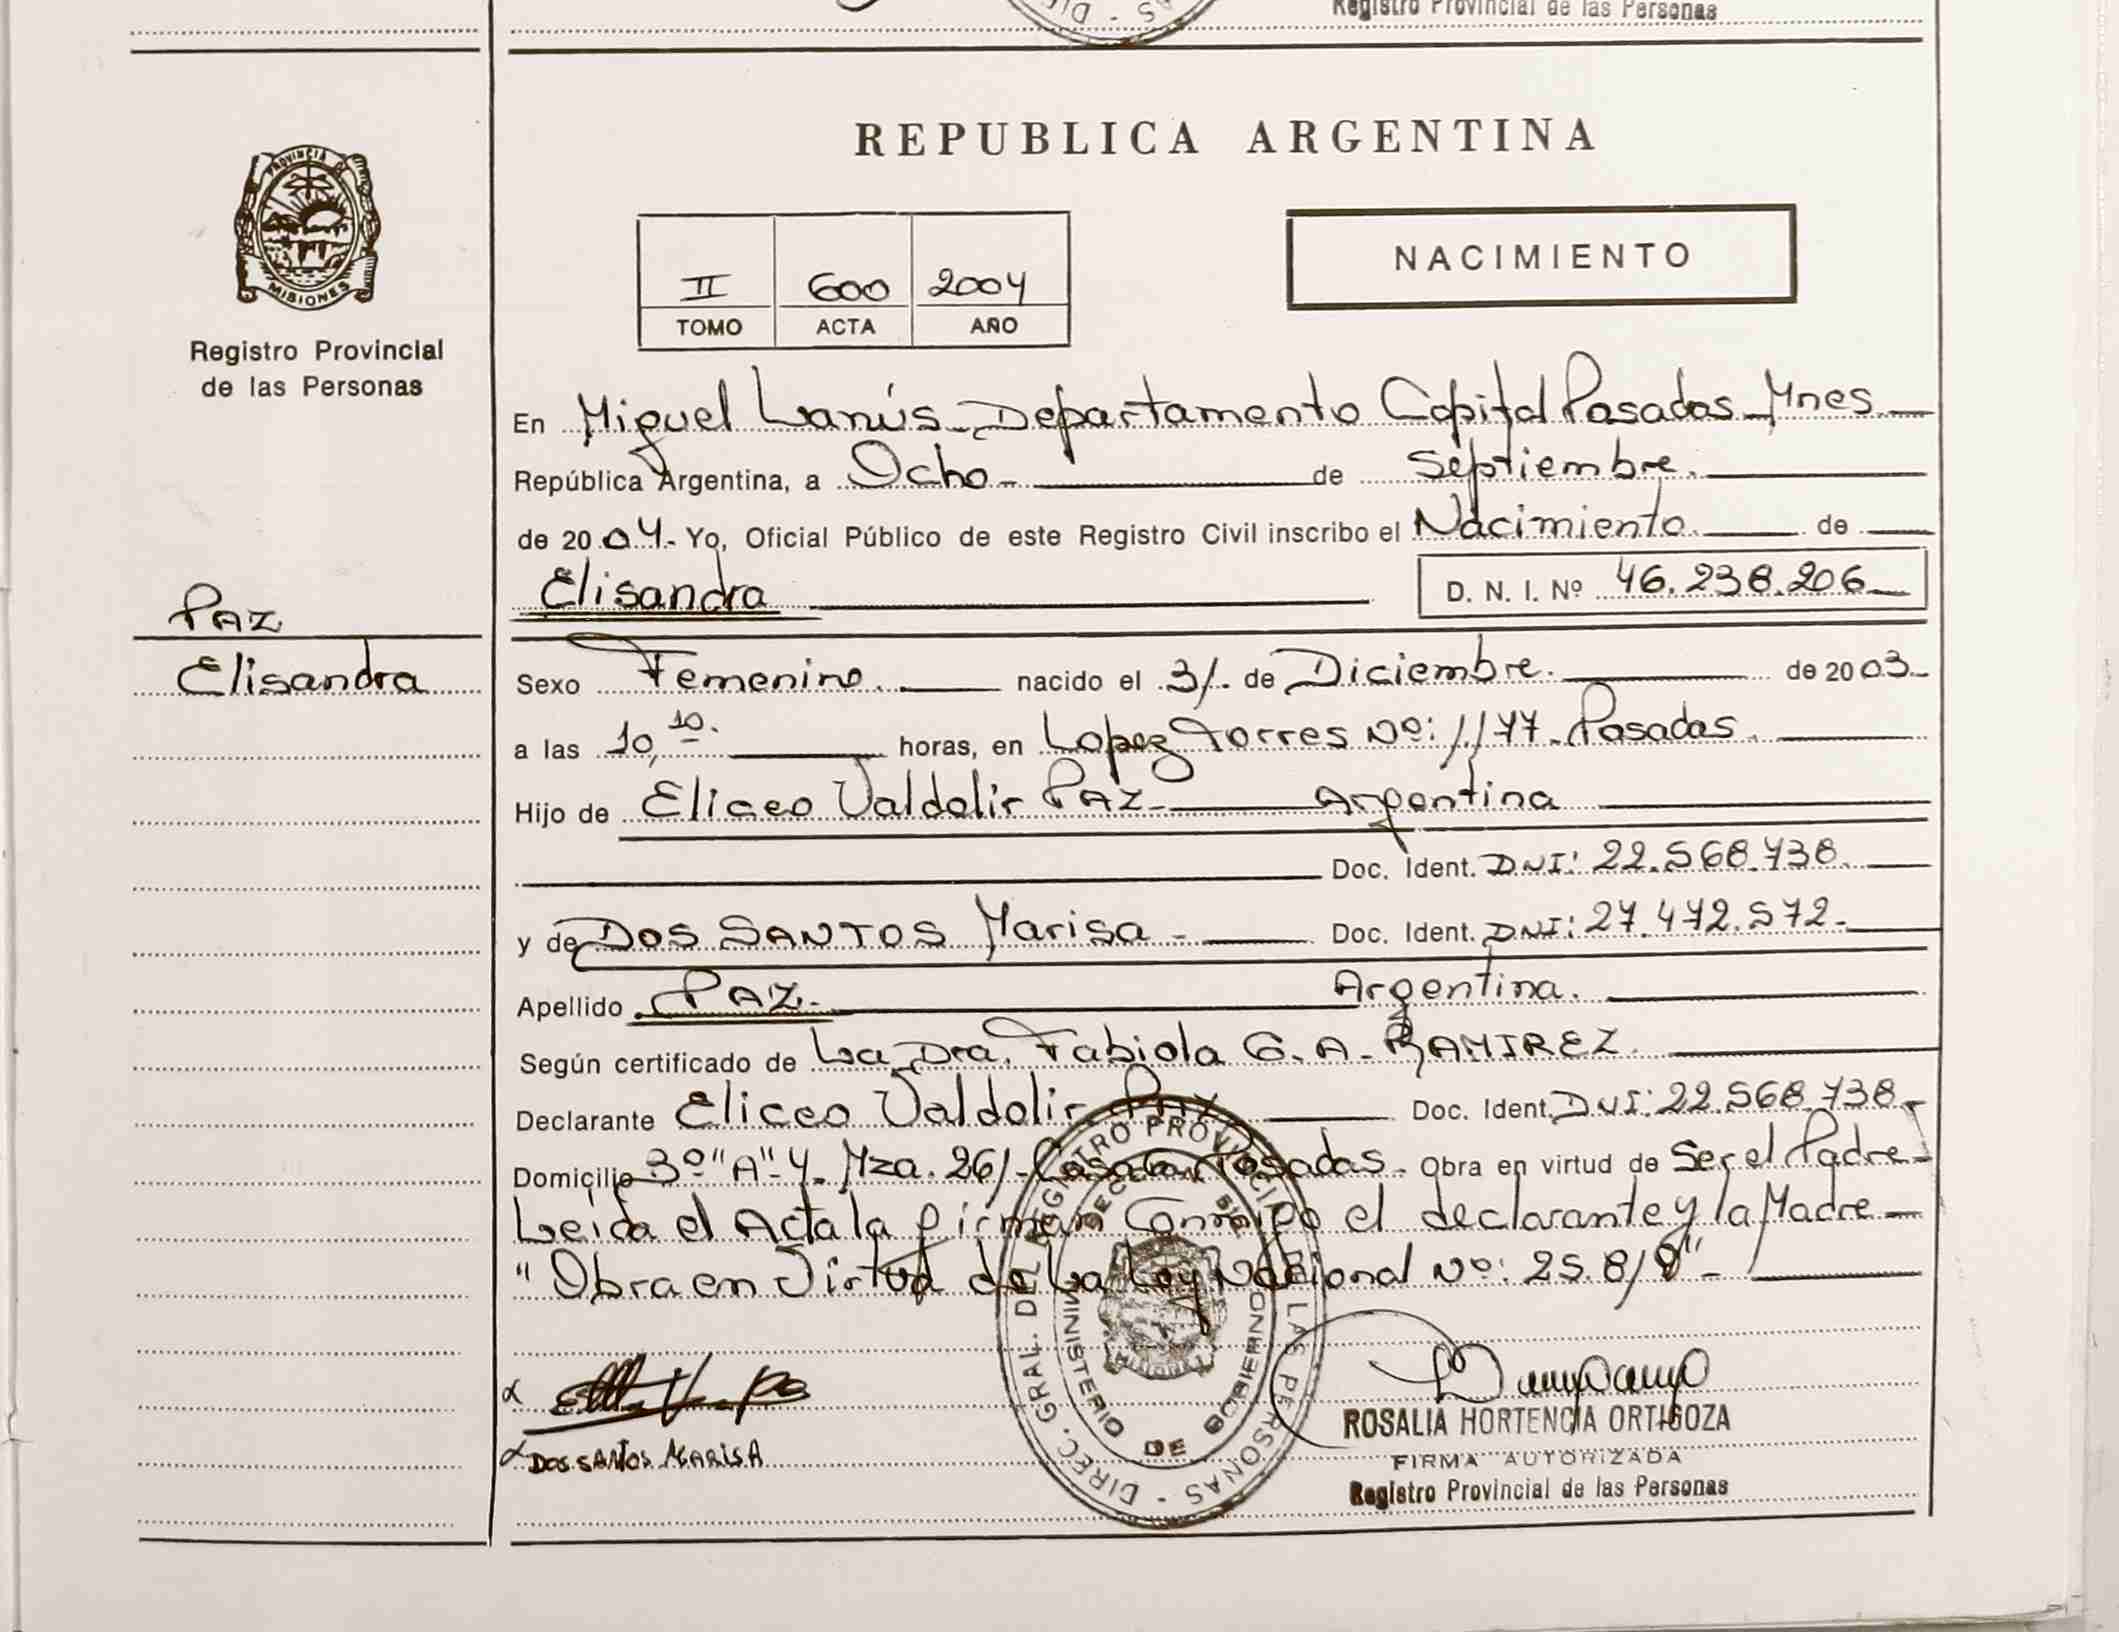 Registro Provincial de las Personas
PROVINCIA DE
MISIONES
Registro Provincial
de las Personas
PAZ
Elisandra
REPUBLICA ARGENTINA
II 600 2004
TOMO ACTA AÑO
NACIMIENTO
En Miguel Lanús - Departamento Capital Posadas - Mnes
República Argentina, a Ocho - de Septiembre.
de 2004 - Yo, Oficial Público de este Registro Civil inscribo el Nacimiento de
Elisandra D. N. I. Nº 46.238.206
Sexo Femenino. nacido el 31. de Diciembre. de 2003
a las 10,10. horas, en Lopez Torres Nº: 1177 - Posadas.
Hijo de Eliceo Valdolir PAZ - Argentina
Doc. Ident. DNI: 22.568.738.
y de DOS SANTOS Marisa - Doc. Ident. DNI: 27.472.572.
Apellido PAZ. Argentina.
Según certificado de La Dra. Fabiola G. A. RAMIREZ.
Declarante Eliceo Valdolir PAZ Doc. Ident. DNI: 22.568.738 -
Domicilio 3º "A" - 4 - Mza. 261 - Casa Posadas - Obra en virtud de Ser el Padre -
Leida el Acta la firman Conmigo el declarante y la Madre -
"Obra en Virtud de La Ley Nacional Nº: 25.819" -
DOS SANTOS MARISA
DIREC. GRAL. DEL REGISTRO PROVINCIAL DE LAS PERSONAS -
MINISTERIO DE GOBIERNO
MISIONES
ROSALIA HORTENCIA ORTIGOZA
FIRMA AUTORIZADA
Registro Provincial de las Personas